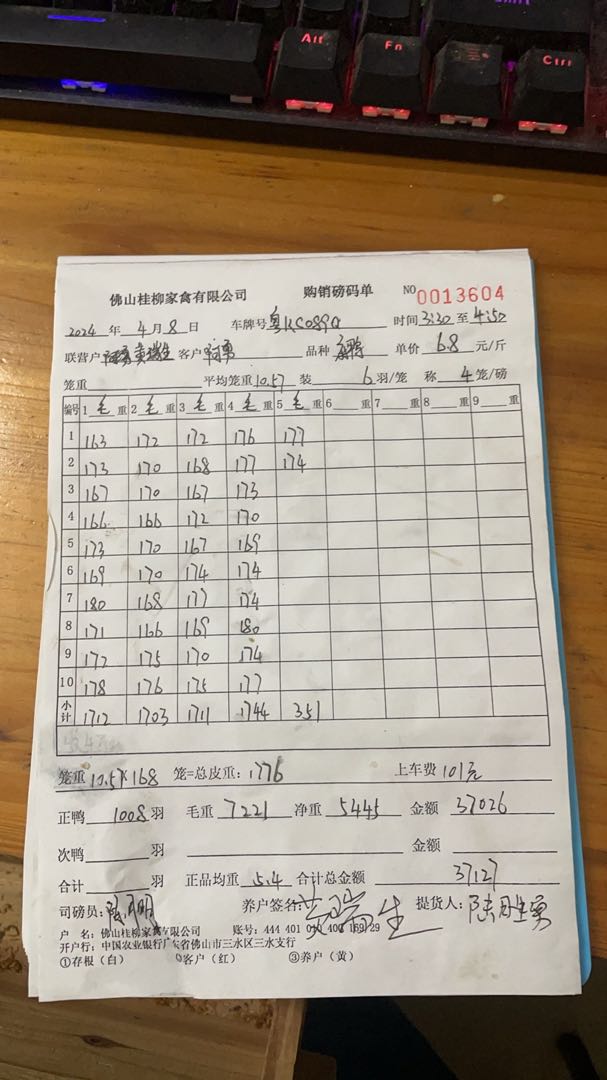 Alt Fn Ctrl
佛山桂柳家禽有限公司 购销磅码单 NO 0013604
2024 年 4 月 8 日 车牌号 时间 3:30 至 4:50
联营户 客户 品种 单价 6.8 元/斤
笼重 平均笼重 10.57 装 6 羽/笼 称 4 笼/磅
编号 1 毛 重 2 毛 重 3 毛 重 4 毛 重 5 毛 重 6 重 7 重 8 重 9 重
1 163 172 172 176 177
2 173 170 168 177 174
3 167 170 167 173
4 166 166 172 170
5 173 170 167 169
6 169 170 174 174
7 180 168 177 174
8 171 166 169 180
9 172 175 170 174
10 178 176 175 177
小计 1712 1703 1711 1744 351
笼重 10.57×168 笼=总皮重: 1776 上车费 101元
正鸭 1008 羽 毛重 7221 净重 5445 金额 37026
次鸭 羽 金额
合计 羽 正品均重 5.4 合计总金额 37127
司磅员: 养户签名: 提货人:
户 名: 佛山桂柳家禽有限公司 账号: 444 401 010 400 169 29
开户行: 中国农业银行广东省佛山市三水区三水支行
①存根（白） ②客户（红） ③养户（黄）